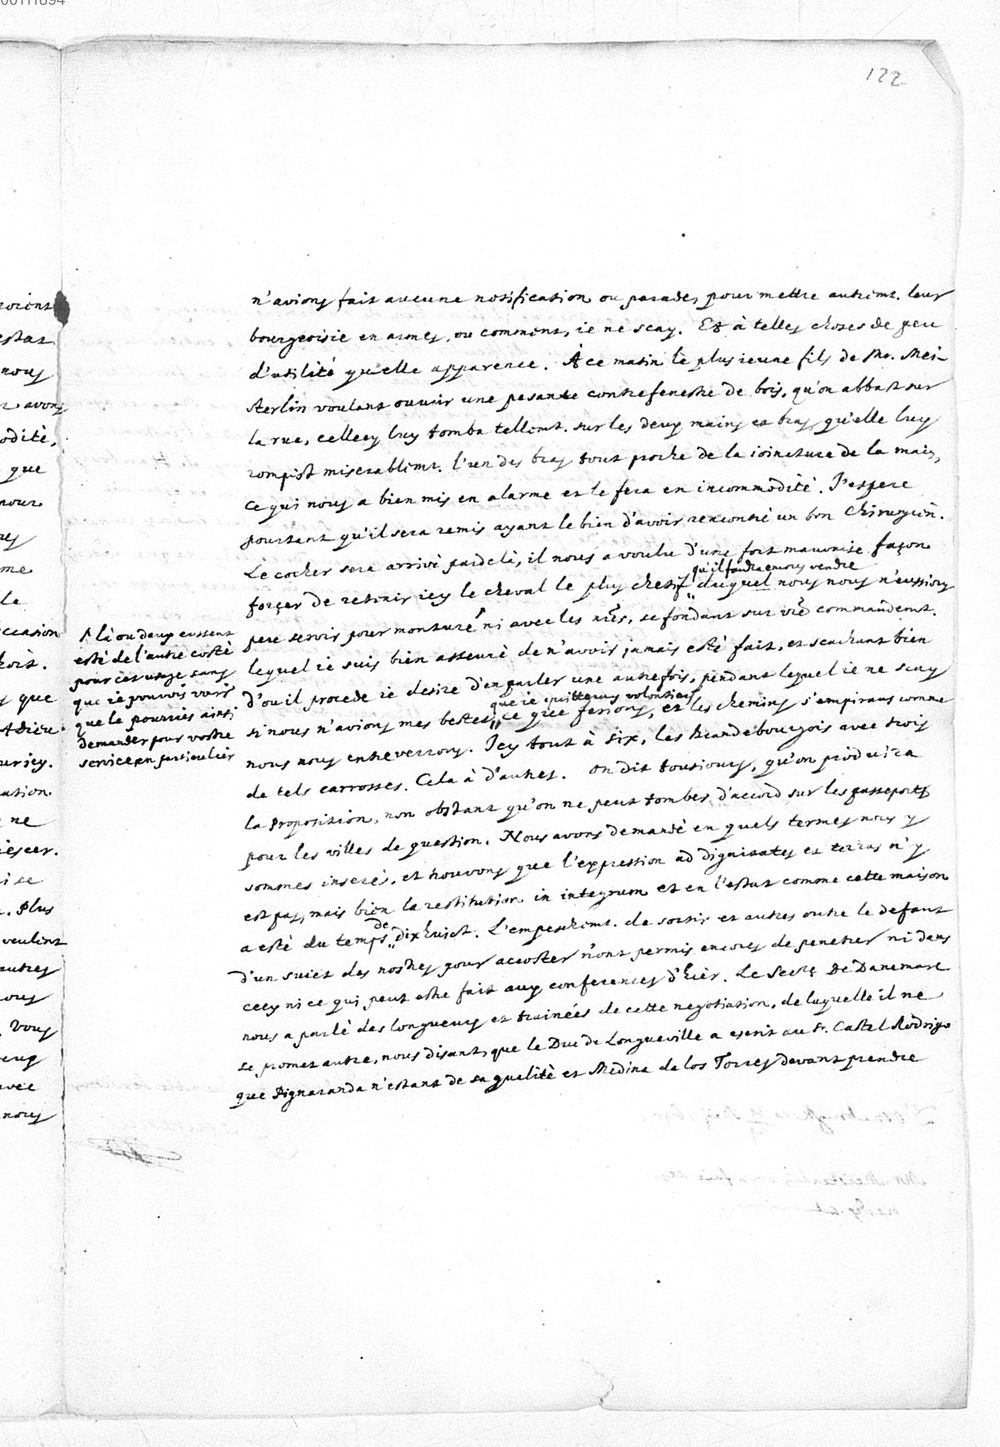 00111894
122
n'avions fait aucune notification ou parades pour mettre autremt. leur
bourgeoisie en armes, ou comment, ie ne scay. Et à telles choses de peu
d'utilité qu'elle apparence. À ce matin le plus ieune fils de Mr. Mei-
sterlin voulant ouvrir une pesante contrefenestre de bois, qu'on abbat sur
la rue, cellecy luy tomba tellemt. sur les deux mains et bras qu'elle luy
rompist miserablemt. l'un des bras tout proche de la iointure de la main,
ce qui nous a bien mis en alarme et le fera en incommodité. J'espere
pourtant qu'il sera remis ayant le bien d'avoir rencontré un bon Chirurgien.
Le cocher sera arrivé pardelà, il nous a voulu d'une fort mauvaise façon
qu'il faudra encores vendre
forçer de retenir icy le cheval le plus chetif duquel nous nous n'eussions
peu servir pour monture ni avec les nres, se fondant sur vre commandemt.
lequel ie suis bien asseuré de n'avoir jamais esté fait, et scachant bien
d'ou il procede ie desire d'en parler une autrefois, pendant lequel ie ne scay
que ie quitterais volontiers
si nous n'avions mes bestes, ce que ferions, et les chemins s'empirans comme
nous nous entreverrons. Icy tout à six, les Brandebourgois avec trois
de tels carrosses. Cela à d'autres. On dit tousiours, qu'on produira
la Proposition, non obstant qu'on ne peut tomber d'accord sur les passeports
pour les villes de question. Nous avons demandé en quels termes nous y
sommes inserés, et trouvons que l'expression ad dignitates et terras n'y
est pas, mais bien la restitution in integrum et en l'estat comme cette maison
a esté du temps de dixhuict. L'empeschemt. de sortir et autres outre le defaut
d'un suiet des nostres pour accoster n'ont permis encores de penetrer ni dans
cecy ni ce qui peut estre fait aux conferences d'hier. Le Secre. De Danemarc
nous a parlé des longueurs et trainées de cette negotiation, de laquelle il ne
se promet autre, nous disant, que le Duc de Longueville a escrit au Sr. Castel Rodrigo
que Pignaranda n'estant de sa qualité et Medina de los Torres devant prendre
^ là ou deux eussent
esté de l'autre costé
pour cet usage sans
que ie pouvois voir
que le pourriés ainsi
demander pour vostre
service en particulier
roient
estat
nous
avons
odité,
que
pour
me
le
occasion
que
Adieu
ne
Plus
veulent
autres
vous
avec
nous